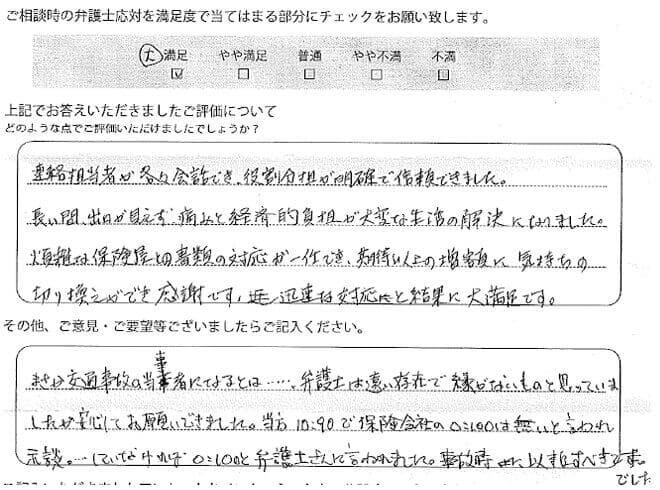 ご相談時の弁護士応対を満足度で当てはまる部分にチェックをお願い致します。
大 満足 やや満足 普通 やや不満 不満
上記でお答えいただきましたご評価について
どのような点でご評価いただけましたでしょうか?
連絡担当者が各々会話でき、役割分担が明確で信頼できました。
長い間、出口が見えず、痛みと経済的負担が大変な生活の解決になりました。
煩雑な保険屋との書類の対応が一任でき、期待以上の増額に気持ちの
切り換えができ感謝です。迅速な対応と結果に大満足です。
その他、ご意見・ご要望等ございましたらご記入ください。
まさか交通事故の当事者になるとは……。弁護士は遠い存在で縁がないものと思っていま
したが安心してお願いできました。当方10:90で保険会社の0:100は無いと言われ
示談。…していなければ0:100と弁護士さんに言われました。事故時に以頼すべき
でした